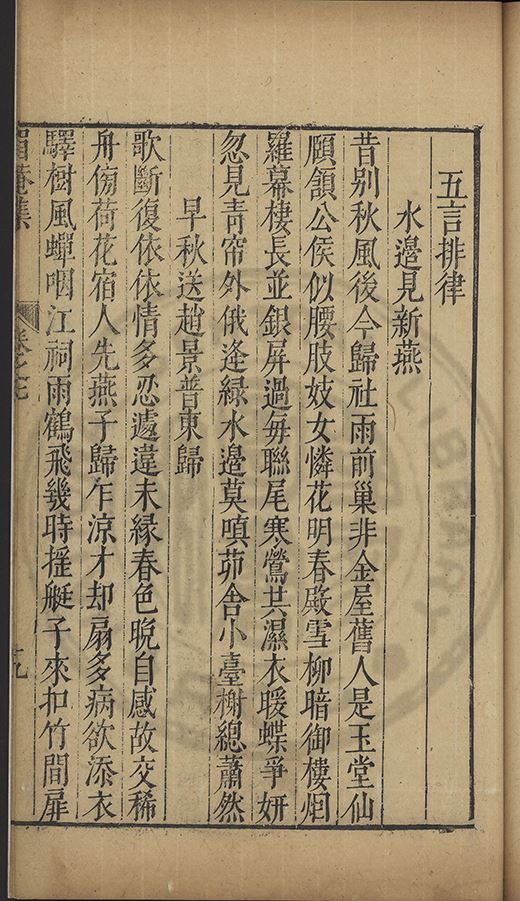 五言排律
水邊見新燕
昔别秋風後今歸社雨前巢非金屋舊人是玉堂仙
頋頷公侯似腰肢妓女憐花明春殿雪柳暗御樓烟
羅幕棲長並銀屏過每聯尾寒鶯共濕衣暖蝶爭妍
忽見青帘外俄逢緑水邉莫嗔茆舎小臺榭總蕭然
早秋送趙景普東歸
歌斷復依依情多忍遽違未縁春色晩自感故交稀
舟傍荷花宿人先燕子歸乍涼才却扇多病欲添衣
驛樹風蟬咽江祠雨鶴飛幾時揺艇子來扣竹間扉
眉菴集